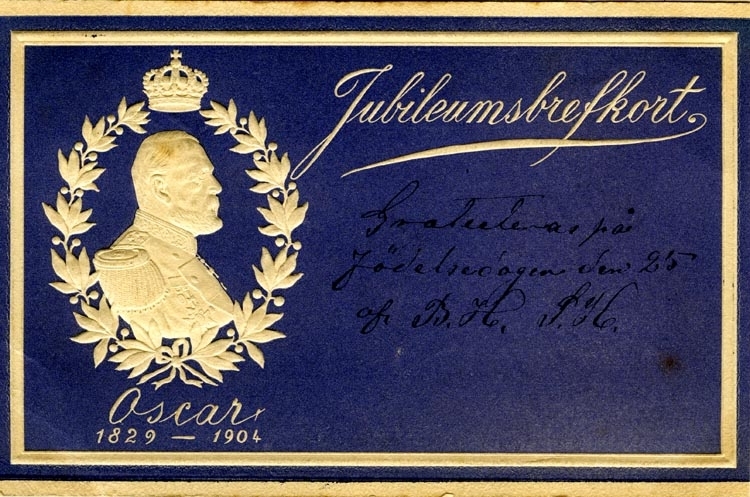 Jubileumsbrefkort.
Gratuleras på
födelsedagen den 25
af B. H. S. H.
Oscar
1829 — 1904